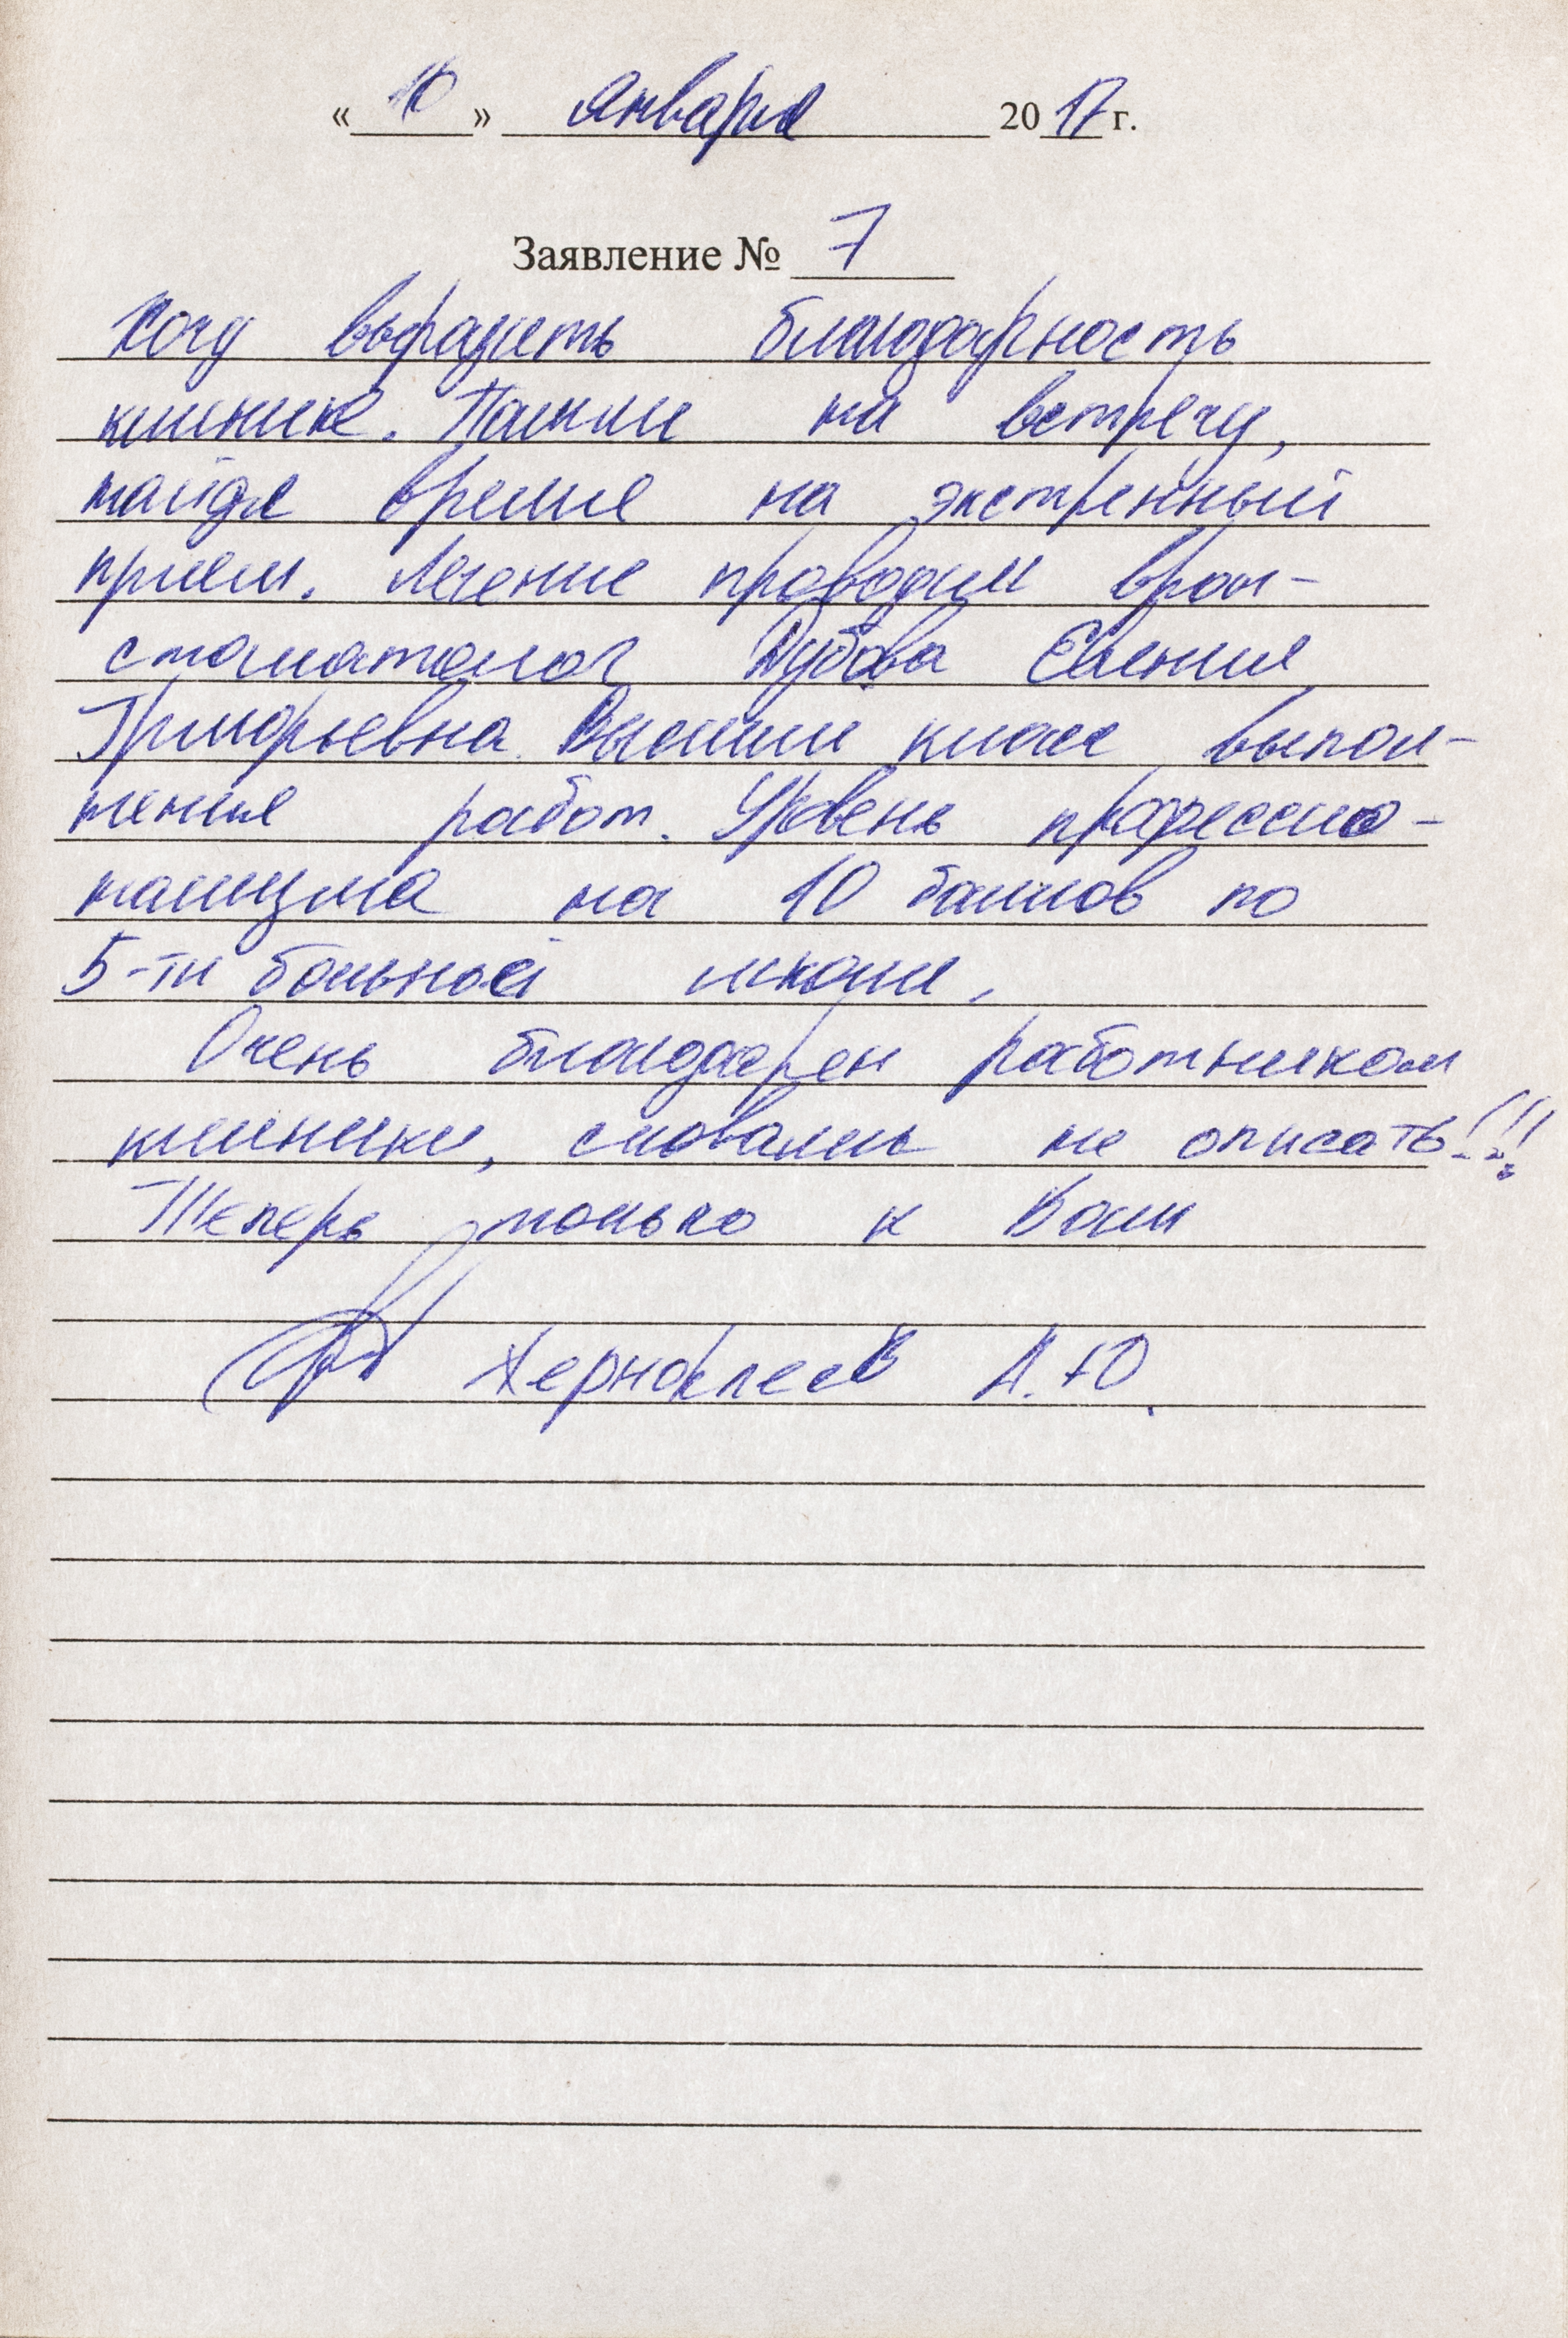 « 10 » января 2017 г.
Заявление № 7
Хочу выразить благодарность
клинике. Пошли на встречу,
найдя время на экстренный
прием. Лечение проводил врач-
стоматолог Дубова Евгения
Григорьевна. Высший класс выпол-
нения работ. Уровень професси-
нализма на 10 баллов по
5-ти бальной шкале.
Очень благодарен работникам
клиники, словами не описать!!!
Теперь только к Вам
А.Ю.